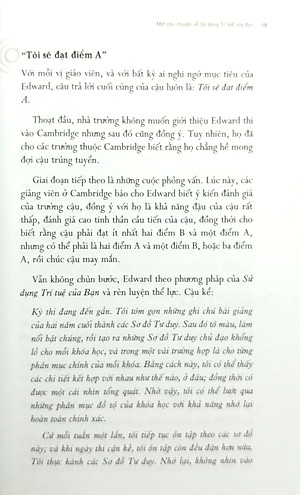 Một câu chuyện về Sử dụng Trí tuệ của Bạn 19
“Tôi sẽ đạt điểm A”
Với mỗi vị giáo viên, và với bất kỳ ai nghi ngờ mục tiêu của
Edward, câu trả lời cuối cùng của cậu luôn là: Tôi sẽ đạt điểm
A.
Thoạt đầu, nhà trường không muốn giới thiệu Edward thi
vào Cambridge nhưng sau đó cũng đồng ý. Tuy nhiên, họ đã
cho các trường thuộc Cambridge biết rằng họ chẳng hề mong
đợi cậu trúng tuyển.
Giai đoạn tiếp theo là những cuộc phỏng vấn. Lúc này, các
giảng viên ở Cambridge bảo cho Edward biết ý kiến đánh giá
của trường cậu, đồng ý với họ là khả năng đậu của cậu rất
thấp, đánh giá cao tinh thần cầu tiến của cậu, đồng thời cho
biết rằng cậu phải đạt ít nhất hai điểm B và một điểm A,
nhưng có thể phải là hai điểm A và một điểm B, hoặc ba điểm
A, rồi chúc cậu may mắn.
Vẫn không chùn bước, Edward theo phương pháp của Sử
dụng Trí tuệ của Bạn và rèn luyện thể lực. Cậu kể:
Kỳ thi đang đến gần. Tôi tóm gọn những ghi chú bài giảng
của hai năm cuối thành các Sơ đồ Tư duy. Sau đó tô màu, làm
nổi bật chúng, rồi tạo ra những Sơ đồ Tư duy chủ đạo khổng
lồ cho mỗi khóa học, và trong một vài trường hợp là cho từng
phân mục chính của mỗi khóa. Bằng cách này, tôi có thể thấy
các chi tiết kết hợp với nhau như thế nào, ở đâu; đồng thời có
được một cái nhìn tổng quát. Nhờ vậy, tôi có thể lướt qua
những phân mục đồ sộ của khóa học với khả năng nhớ lại
hoàn toàn chính xác.
Cứ mỗi tuần một lần, tôi tiếp tục ôn tập theo các sơ đồ
này; và khi ngày thi cận kề, tôi ôn tập còn đều đặn hơn nữa.
Tôi thực hành các Sơ đồ Tư duy. Nhớ lại, không nhìn vào